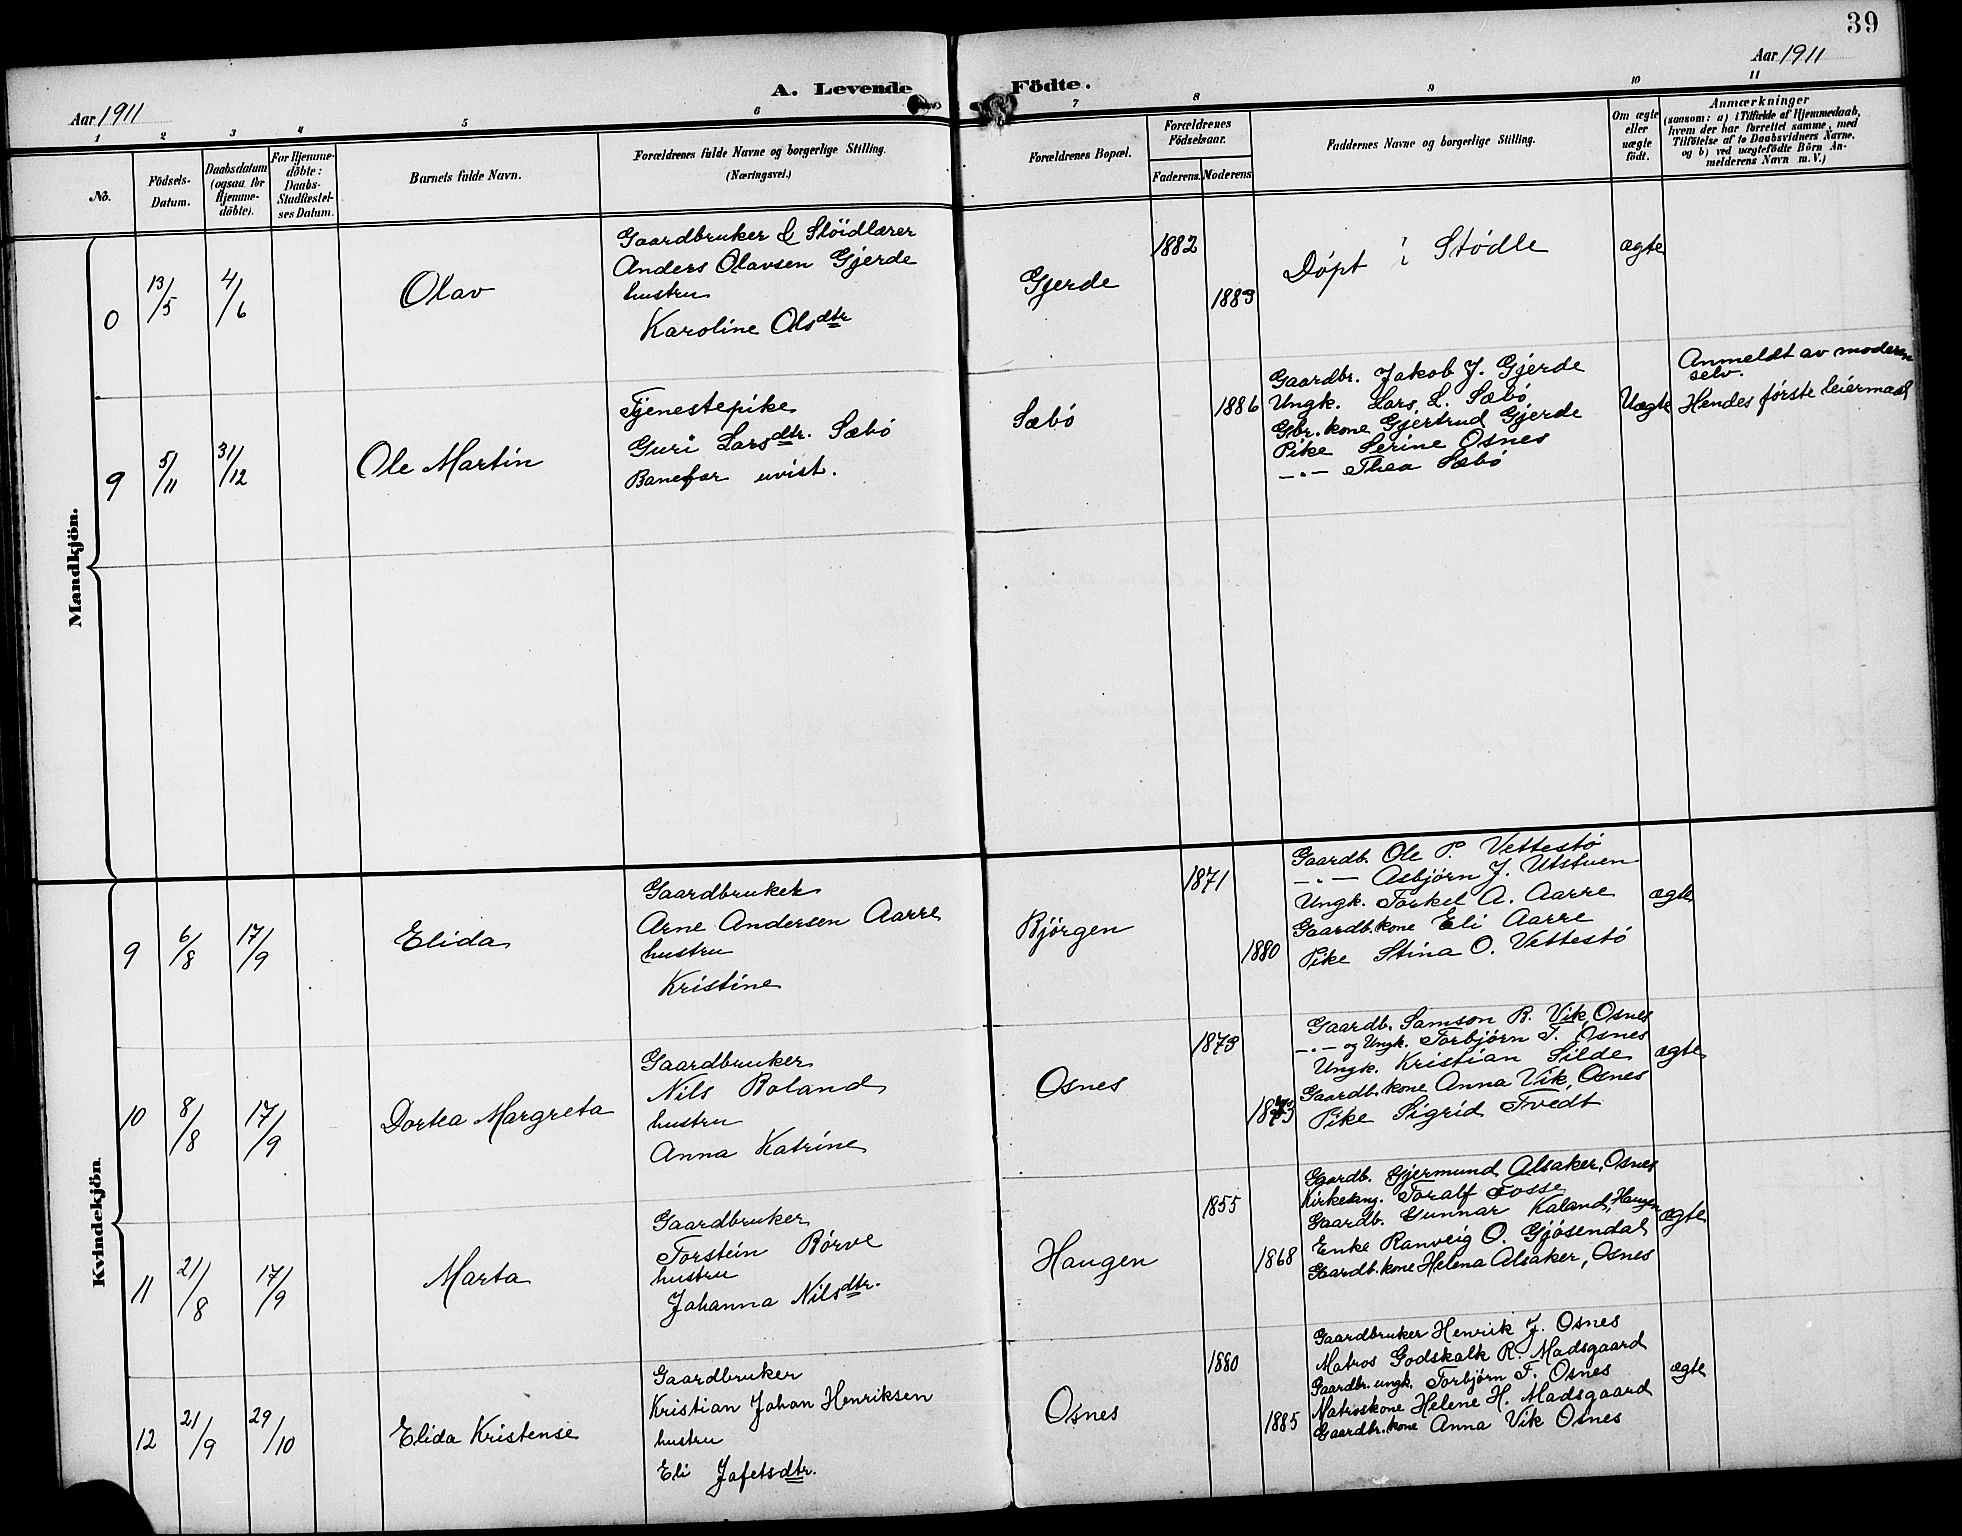 39
Aar 1911
A. Levende Födte.
Aar 1911
1 2 3 4 5 6 7 8 9 10 11
No.
Födsels-
Datum.
Daabsdatum
(ogsaa for
Hjemme-
döbte).
For Hjemme-
döbte:
Daabs-
Stadfæstel-
ses Datum.
Barnets fulde Navn.
Forældrenes fulde Navne og borgerlige Stilling.
(Næringsvei.)
Forældrenes Bopæl.
Forældrenes
Födselsaar.
Faderens. Moderens
Faddernes Navne og borgerlige Stilling.
Om ægte
eller
uægte
födt.
Anmærkninger
(saasom: a) i Tilfælde af Hjemmedaab,
hvem der har forrettet samme, med
Tilföielse af to Daabsvidners Navne,
og b) ved uægtefödte Börn An-
melderens Navn m. V.)
Mandkjön.
0
13/5
4/6
Olav
Gaardbruker & Slöidlærer
Anders Olavsen Gjerde
hustru
Karoline Olsdtr
Gjerde
1882
1883
Döpt i Stödle
ægte
9
5/11
31/12
Ole Martin
Tjenestepike
Guri Larsdtr. Sæbö
Banefar uvist.
Sæbö
1886
Gaardbr. Jakob J. Gjerde
Ungk. Lars L. Sæbö
Gbr. kone Gjertrud Gjerde
Pike Serine Osnes
—"— Thea Sæbö
Uægte
Anmeldt av moderen
selv.
Hendes förste leiermaal
Kvindekjön.
9
6/8
17/9
Elida
Gaardbruker
Arne Andersen Aarre
hustru
Kristine
Bjørgen
1871
1880
Gaardb. Ole P. Vettestø
—"— Asbjørn J. Utstuen
Ungk. Torkel A. Aarre
Gaardb.kone Eli Aarre
Pike Stina O. Vettestø
ægte
10
8/8
17/9
Dortea Margreta
Gaardbruker
Nils Boland
hustru
Anna Katrine
Osnes
1873
Gaardb. Samson R. Vik, Osnes
—"— og Ungk. Torbjørn T. Osnes
Ungk. Kristian Silde
Gaardb.kone Anna Vik, Osnes
Pike Sigrid Tvedt
ægte
11
21/8
17/9
Marta
Gaardbruker
Torstein Børve
hustru
Johanna Nilsdtr.
Haugen
1855
1868
Gaardb. Gjermund Alsaker, Osnes
Kirkesang. Toralf Fosse
Gaardb. Gunnar Kaland, Haugen
Enke Ranveig O. Gjøsendal
Gaardb.kone Helena Alsaker, Osnes
ægte
12
21/9
29/10
Elida Kristense
Gaardbruker
Kristian Johan Henriksen
hustru
Eli Jafetsdtr.
Osnes
1880
1885
Gaardbruker Henrik J. Osnes
Matros Godskalk R. Madsgaard
Gaardbr. ungk. Torbjørn T. Osnes
Matroskone Helene H. Madsgaard
Gaardbr.kone Anna Vik Osnes
ægte